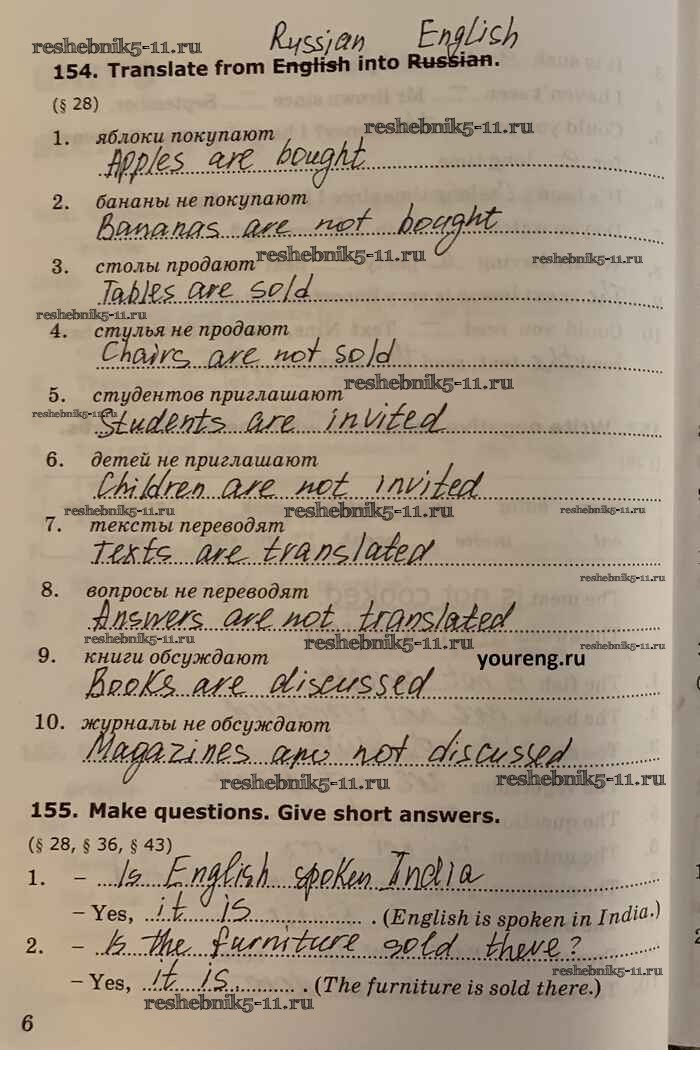 Russian English
reshebnik5-11.ru
154. Translate from English into Russian.
(§ 28)
1. яблоки покупают
reshebnik5-11.ru
Apples are bought
2. бананы не покупают
Bananas are not bought
reshebnik5-11.ru
reshebnik5-11.ru
3. столы продают
Tables are sold
reshebnik5-11.ru
4. стулья не продают
Chairs are not sold
reshebnik5-11.ru
5. студентов приглашают
reshebnik5-11.ru
Students are invited
6. детей не приглашают
Children are not invited
reshebnik5-11.ru
reshebnik5-11.ru
reshebnik5-11.ru
7. тексты переводят
Texts are translated
reshebnik5-11.ru
8. вопросы не переводят
Answers are not translated
reshebnik5-11.ru
reshebnik5-11.ru
reshebnik5-11.ru
9. книги обсуждают
youreng.ru
Books are discussed
10. журналы не обсуждают
Magazines are not discussed
reshebnik5-11.ru
reshebnik5-11.ru
155. Make questions. Give short answers.
(§ 28, § 36, § 43)
1. – Is English spoken India
– Yes, it is. (English is spoken in India.)
2. – Is the furniture sold there?
reshebnik5-11.ru
– Yes, it is. (The furniture is sold there.)
reshebnik5-11.ru
6